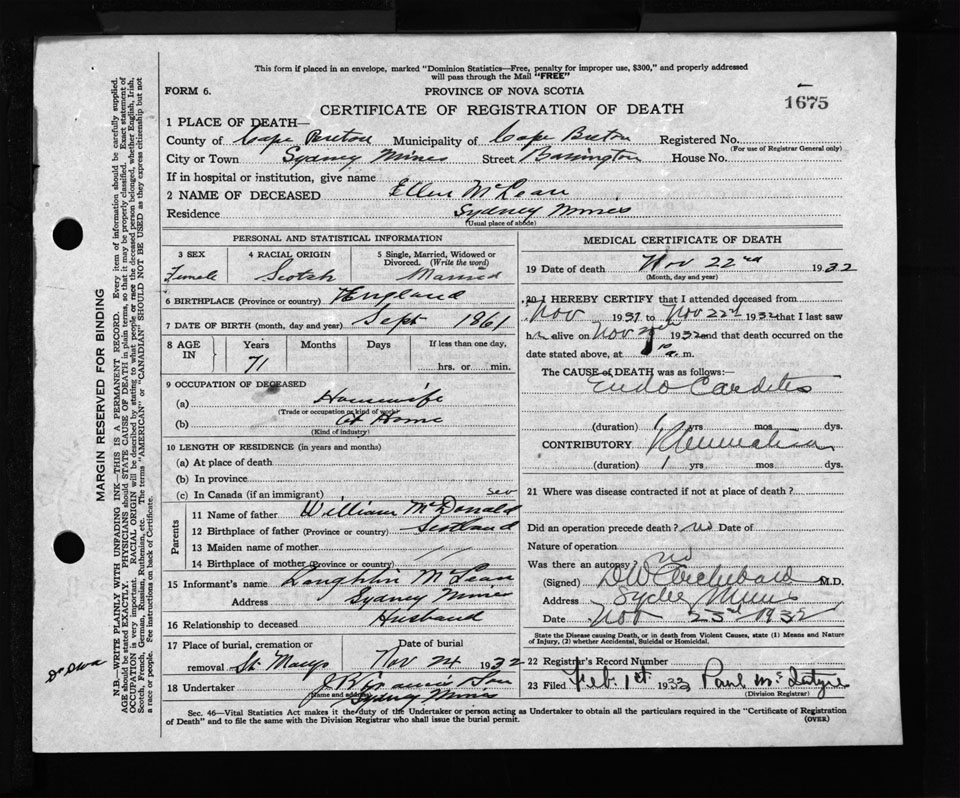 This form if placed in an envelope, marked "Dominion Statistics—Free, penalty for improper use, $300," and properly addressed
will pass through the Mail "FREE"
FORM 6.
PROVINCE OF NOVA SCOTIA
1675
CERTIFICATE OF REGISTRATION OF DEATH
1 PLACE OF DEATH—
County of Cape Breton Municipality of Cape Breton Registered No.
(For use of Registrar General only)
City or Town Sydney Mines Street Barrington House No.
If in hospital or institution, give name
2 NAME OF DECEASED Ellen McLean
Residence Sydney Mines
(Usual place of abode)
PERSONAL AND STATISTICAL INFORMATION
3 SEX Female
4 RACIAL ORIGIN Scotch
5 Single, Married, Widowed or Divorced. (Write the word) Married
6 BIRTHPLACE (Province or country) England
7 DATE OF BIRTH (month, day and year) Sept 1861
8 AGE IN Years 71 Months Days If less than one day, hrs. or min.
9 OCCUPATION OF DECEASED
(a) Housewife
(Trade or occupation or kind of work)
(b) At Home
(Kind of industry)
10 LENGTH OF RESIDENCE (in years and months)
(a) At place of death
(b) In province
(c) In Canada (if an immigrant)
Parents
11 Name of father William McDonald
12 Birthplace of father (Province or country) Scotland
13 Maiden name of mother
14 Birthplace of mother (Province or country)
15 Informant's name Laughlin McLean
Address Sydney Mines
16 Relationship to deceased Husband
17 Place of burial, cremation or removal St Marys
Date of burial Nov 24 1932
18 Undertaker
Name and address
Sydney Mines
MEDICAL CERTIFICATE OF DEATH
19 Date of death Nov 22nd 1932
(Month, day and year)
20 I HEREBY CERTIFY that I attended deceased from
Nov 1931 to Nov 22nd 1932 that I last saw
h alive on Nov 1932 and that death occurred on the
date stated above, at m.
The CAUSE of DEATH was as follows:—
Endo Carditis
(duration) 1 yrs mos dys.
CONTRIBUTORY Rheumatism
(duration) 1 yrs mos dys.
21 Where was disease contracted if not at place of death?
Did an operation precede death? no Date of
Nature of operation
Was there an autopsy? no
(Signed) Archibald M.D.
Address Sydney Mines
Date Nov 23rd 1932
State the Disease causing Death, or in death from Violent Causes, state (1) Means and Nature
of Injury, (2) whether Accidental, Suicidal or Homicidal.
22 Registrar's Record Number
23 Filed Feb. 1st 1933 Paul McIntyre
(Division Registrar)
Sec. 46—Vital Statistics Act makes it the duty of the Undertaker or person acting as Undertaker to obtain all the particulars required in the "Certificate of Registration
of Death" and to file the same with the Division Registrar who shall issue the burial permit.
(OVER)
MARGIN RESERVED FOR BINDING
N.B.—WRITE PLAINLY WITH UNFADING INK—THIS IS A PERMANENT RECORD. Every item of information should be carefully supplied.
AGE should be stated EXACTLY. PHYSICIANS should STATE CAUSE OF DEATH in plain terms, so that it may be properly classified. Exact statement of
OCCUPATION is very important. RACIAL ORIGIN will be described by stating to what people or race the deceased person belonged, whether English, Irish,
Scotch, French, German, Russian, Ruthenian, etc. The terms "AMERICAN" or "CANADIAN" SHOULD NOT BE USED as they express citizenship but not
a race or people. See instructions on back of Certificate.